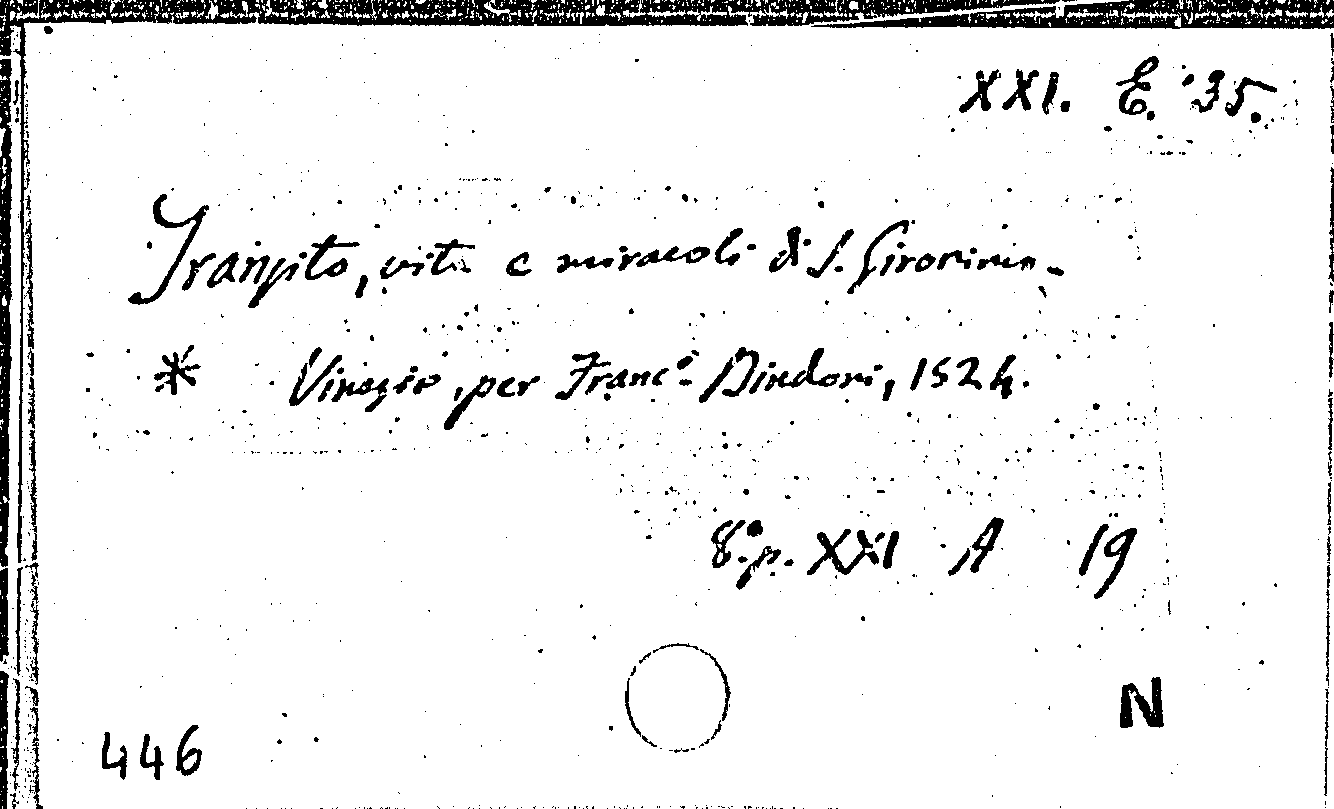 XXI. E. 35.
Transito, vita e miracoli di S. Gironimo.
* Vinegia, per Franc.º Bindoni, 1524.
8.º p. XXI A 19
N
446